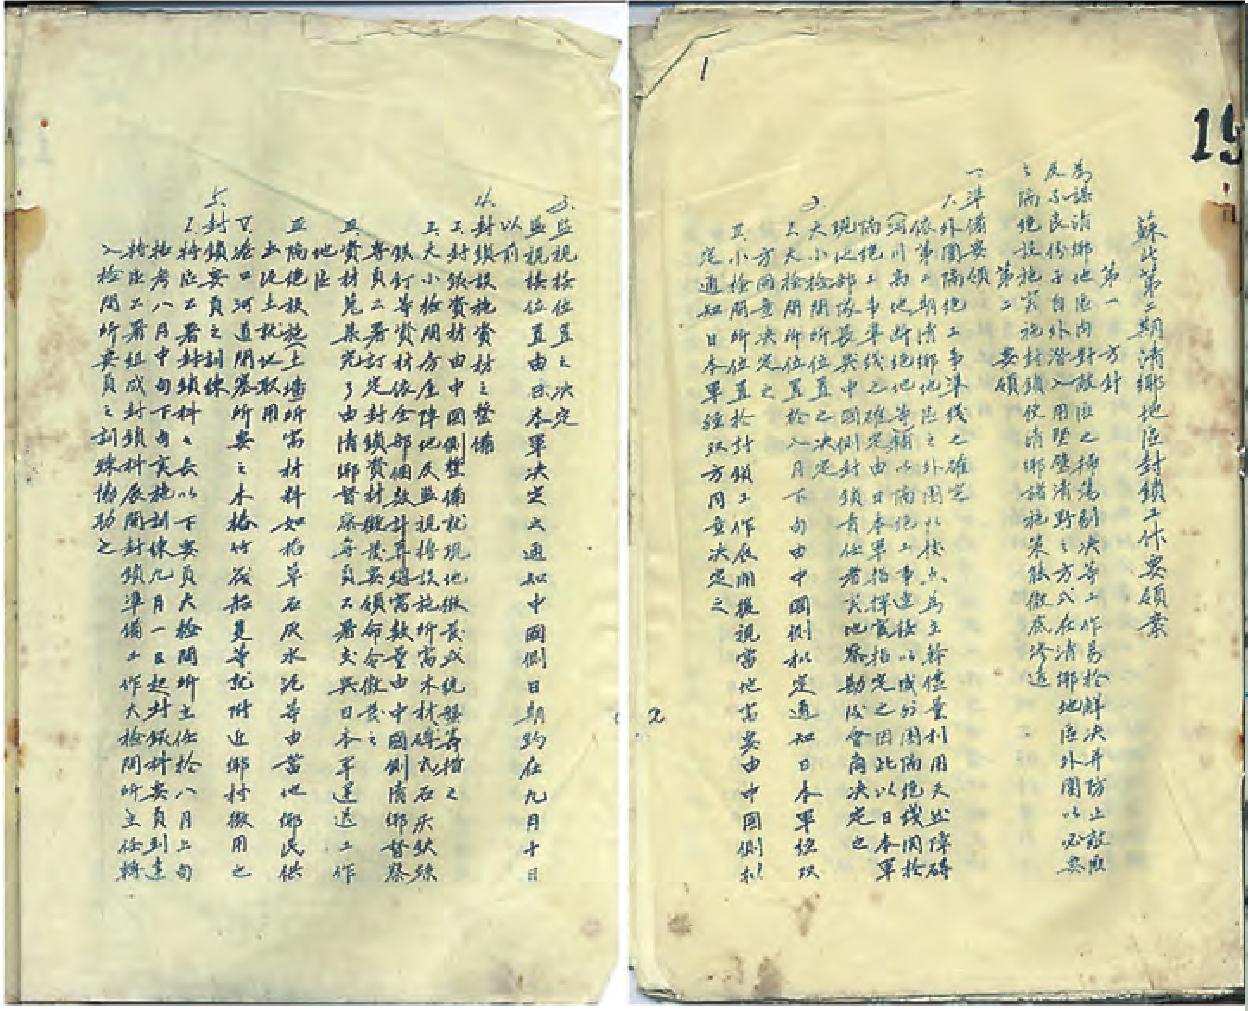 1
15
蘇北第二期清鄉地區封鎖工作要領案
第一 方針
為謀清鄉地區內對敵匪之掃蕩剔決等工作易於解決并防止敵匪
及不良份子自外潛入用堅壁清野之方式在清鄉地區外圍以必要
之隔絕設施實施封鎖使清鄉諸施策能徹底滲透
第二 要領
一、準備要領
1.外圍隔絕工事準線之確定
依第二期清鄉地區之外圍以據點為主幹儘量利用天然障碍
(河川高地斷絕地等)輔以隔絕工事連接以成外圍隔絕線關於
隔絕工事準線之確定由日本軍指揮官指定之因此以日本軍
現地部隊長與中國側封鎖責任者實地察勘後會商決定之
2.大小檢問所位置之決定
I.大檢問所位置於八月下旬由中國側擬定通知日本軍經双
方同意決定之
II.小檢問所位置於封鎖工作展開後視當地需要由中國側擬
定通知日本軍經双方同意決定之
2
3.監視按位置之決定
監視按位置由日本軍決定之通知中國側日期約在九月十日
以前
4.封鎖設施資材之整備
I.封鎖資材由中國側整備就現地徵長或統盤籌措之
I.大小檢問房屋陣地及監視按設施所需木材磚瓦石灰鉄絲
鉄釘等資材依全部個數計算總需數量由中國側清鄉督察
專員公署訂定封鎖資材徵發要領命令徵發之
II.資材見集完了由清鄉督察專員公署交與日本軍運送工作
地區
III.隔絕設施(土墻)所需材料如稻草石灰水泥等由當地鄉民供
出泥土就地取用
IV.港口河道閘基所要之木樁竹筏船隻等就附近鄉村徵用之
5.封鎖要員之訓練
I.特區公署封鎖科科長以下要員大檢問所主任於八月上旬
招考八月中旬下旬實施訓練九月一日起封鎖科要員到達
特區公署組成封鎖科展開封鎖準備工作大檢問所主任轉
入檢問所要員之訓練協助之